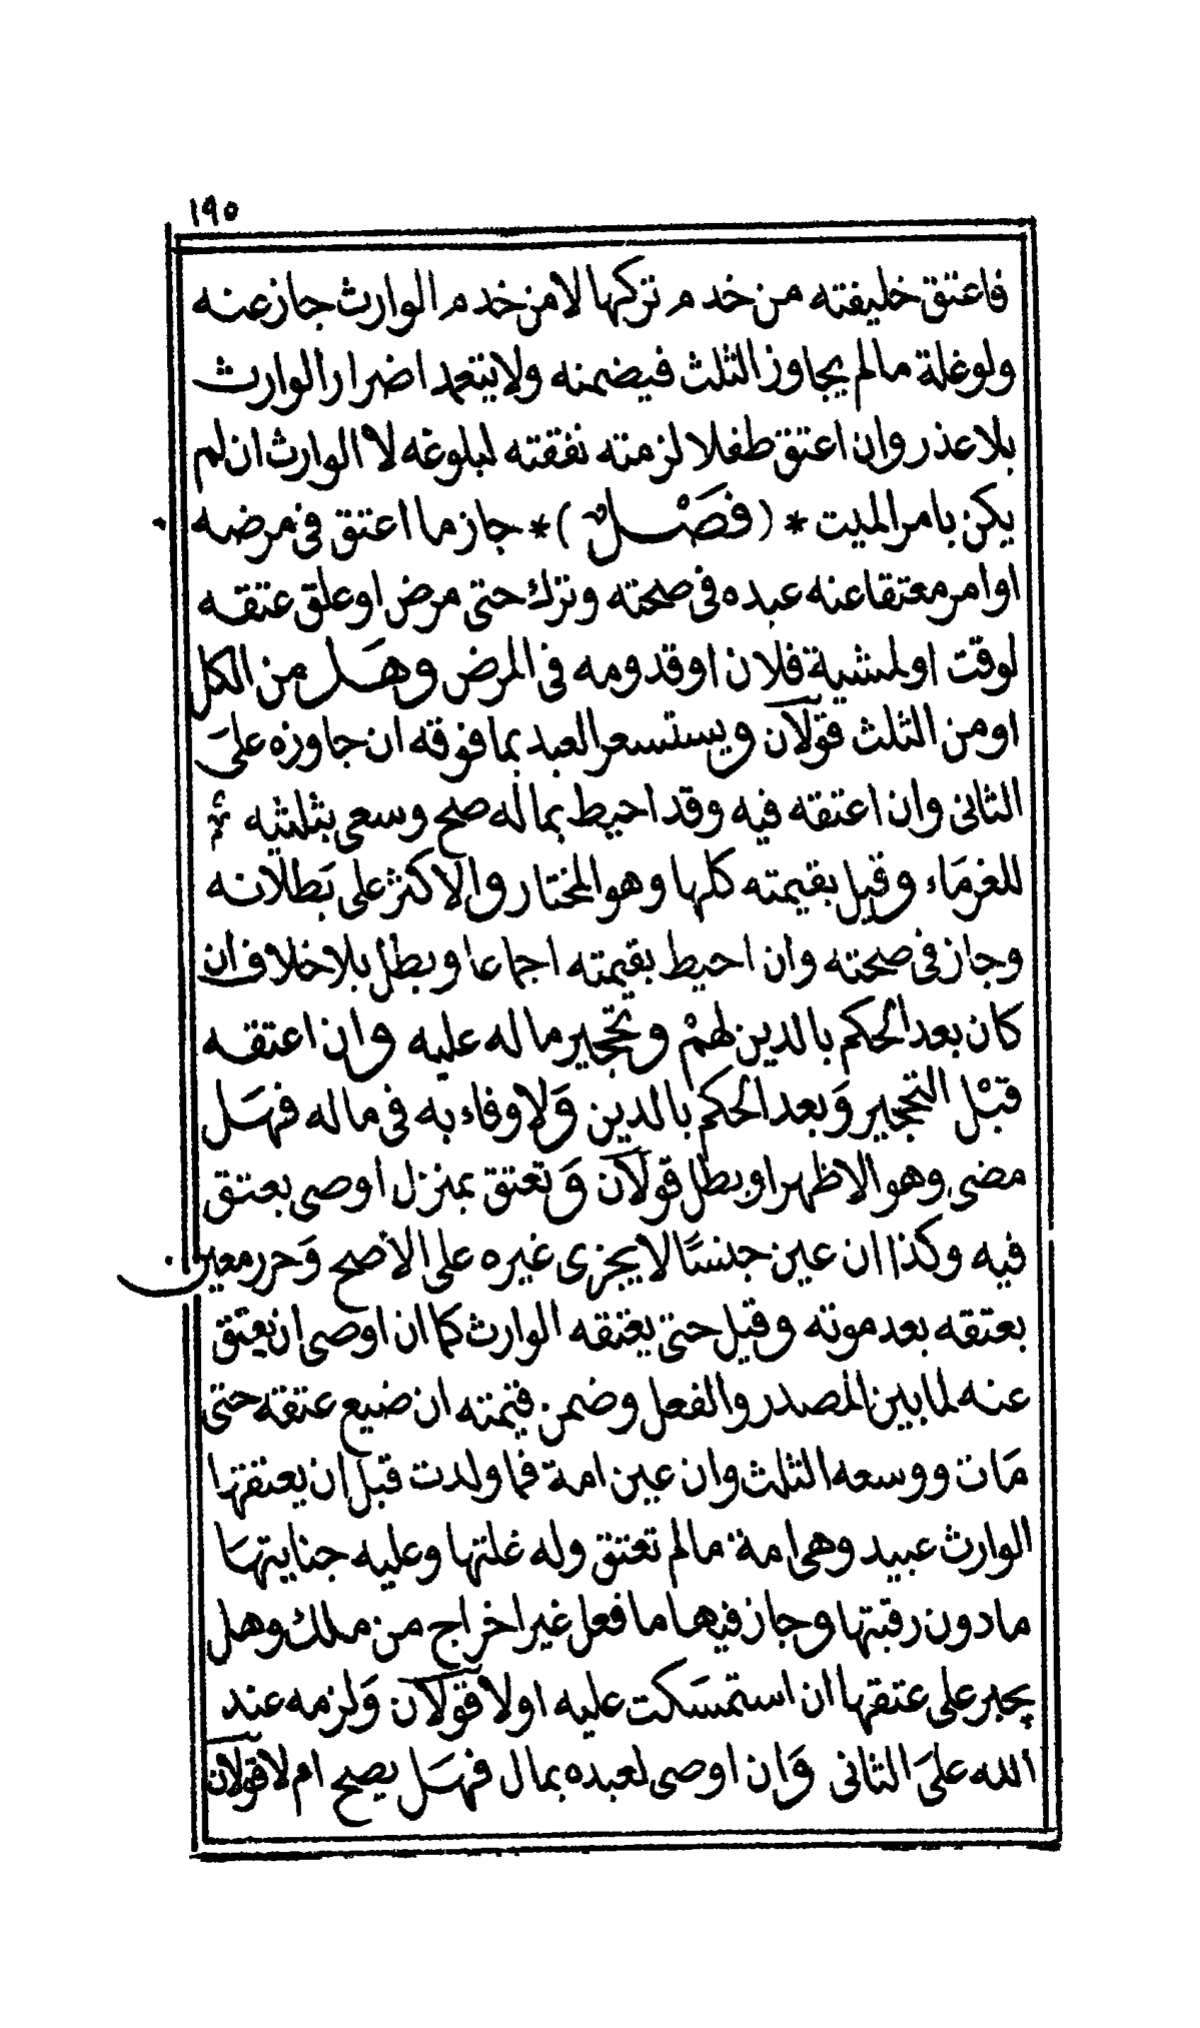 ١٩٥
فاعتق خليفته من خدم تركها لا من خدم الوارث جاز عنه
ولو غلة ما لم يجاوز الثلث فيضمنه ولا يتعمد اضرار الوارث
بلا عذر وان اعتق طفلا لزمته نفقته لبلوغه لا الوارث ان لم
يكن بامر الميت * (فصْل) * جاز ما اعتق في مرضه
او امر معتقا عنه عبده في صحته وترك حتى مرض او علق عتقه
لوقت او لمشية فلان او قدومه في المرض وهَل من الكل
او من الثلث قولان ويستسعر العبد بما فوقه ان جاوزه علىَ
الثاني وان اعتقه فيه وقد احيط بماله صح وسعى بثلثيه
للغرمَاء وقيل بقيمته كلها وهو المختار والاكثر على بَطلانه
وجاز في صحته وان احيط بقيمته اجماعا وبطل بلا خلاف ان
كان بعد الحكم بالدين لهمْ وتحجير ماله عليه وان اعتقه
قبْل التحجير وَبعد الحكم بالدين وَلا وفاء به في ماله فهَل
مضى وهو الاظهر او بطل قولان وَتعتق بمنزل اوصى بعتق
فيه وكذا ان عين جنسًا لا يجزى غيره على الاصح وَحرر معين
بعتقه بعد موته وقيل حتى يعتقه الوارث كما ان اوصى ان يعتق
عنه لما بين المصدر والفعل وضمن قيمته ان ضيع عتقه حتى
مَات ووسعه الثلث وان عين امة فما ولدت قبل ان يعتقها
الوارث عبيد وهى امة ما لم تعتق وله غلتها وعليه جنايتهَا
ما دون رقبتها وجاز فيها ما فعل غير اخراج من ملك وهل
يجبر على عتقها ان استمسَكت عليه او لا قولان وَلزمه عند
الله علىَ الثاني وَان اوصى لعبده بمال فهَل يصح ام لا قولان